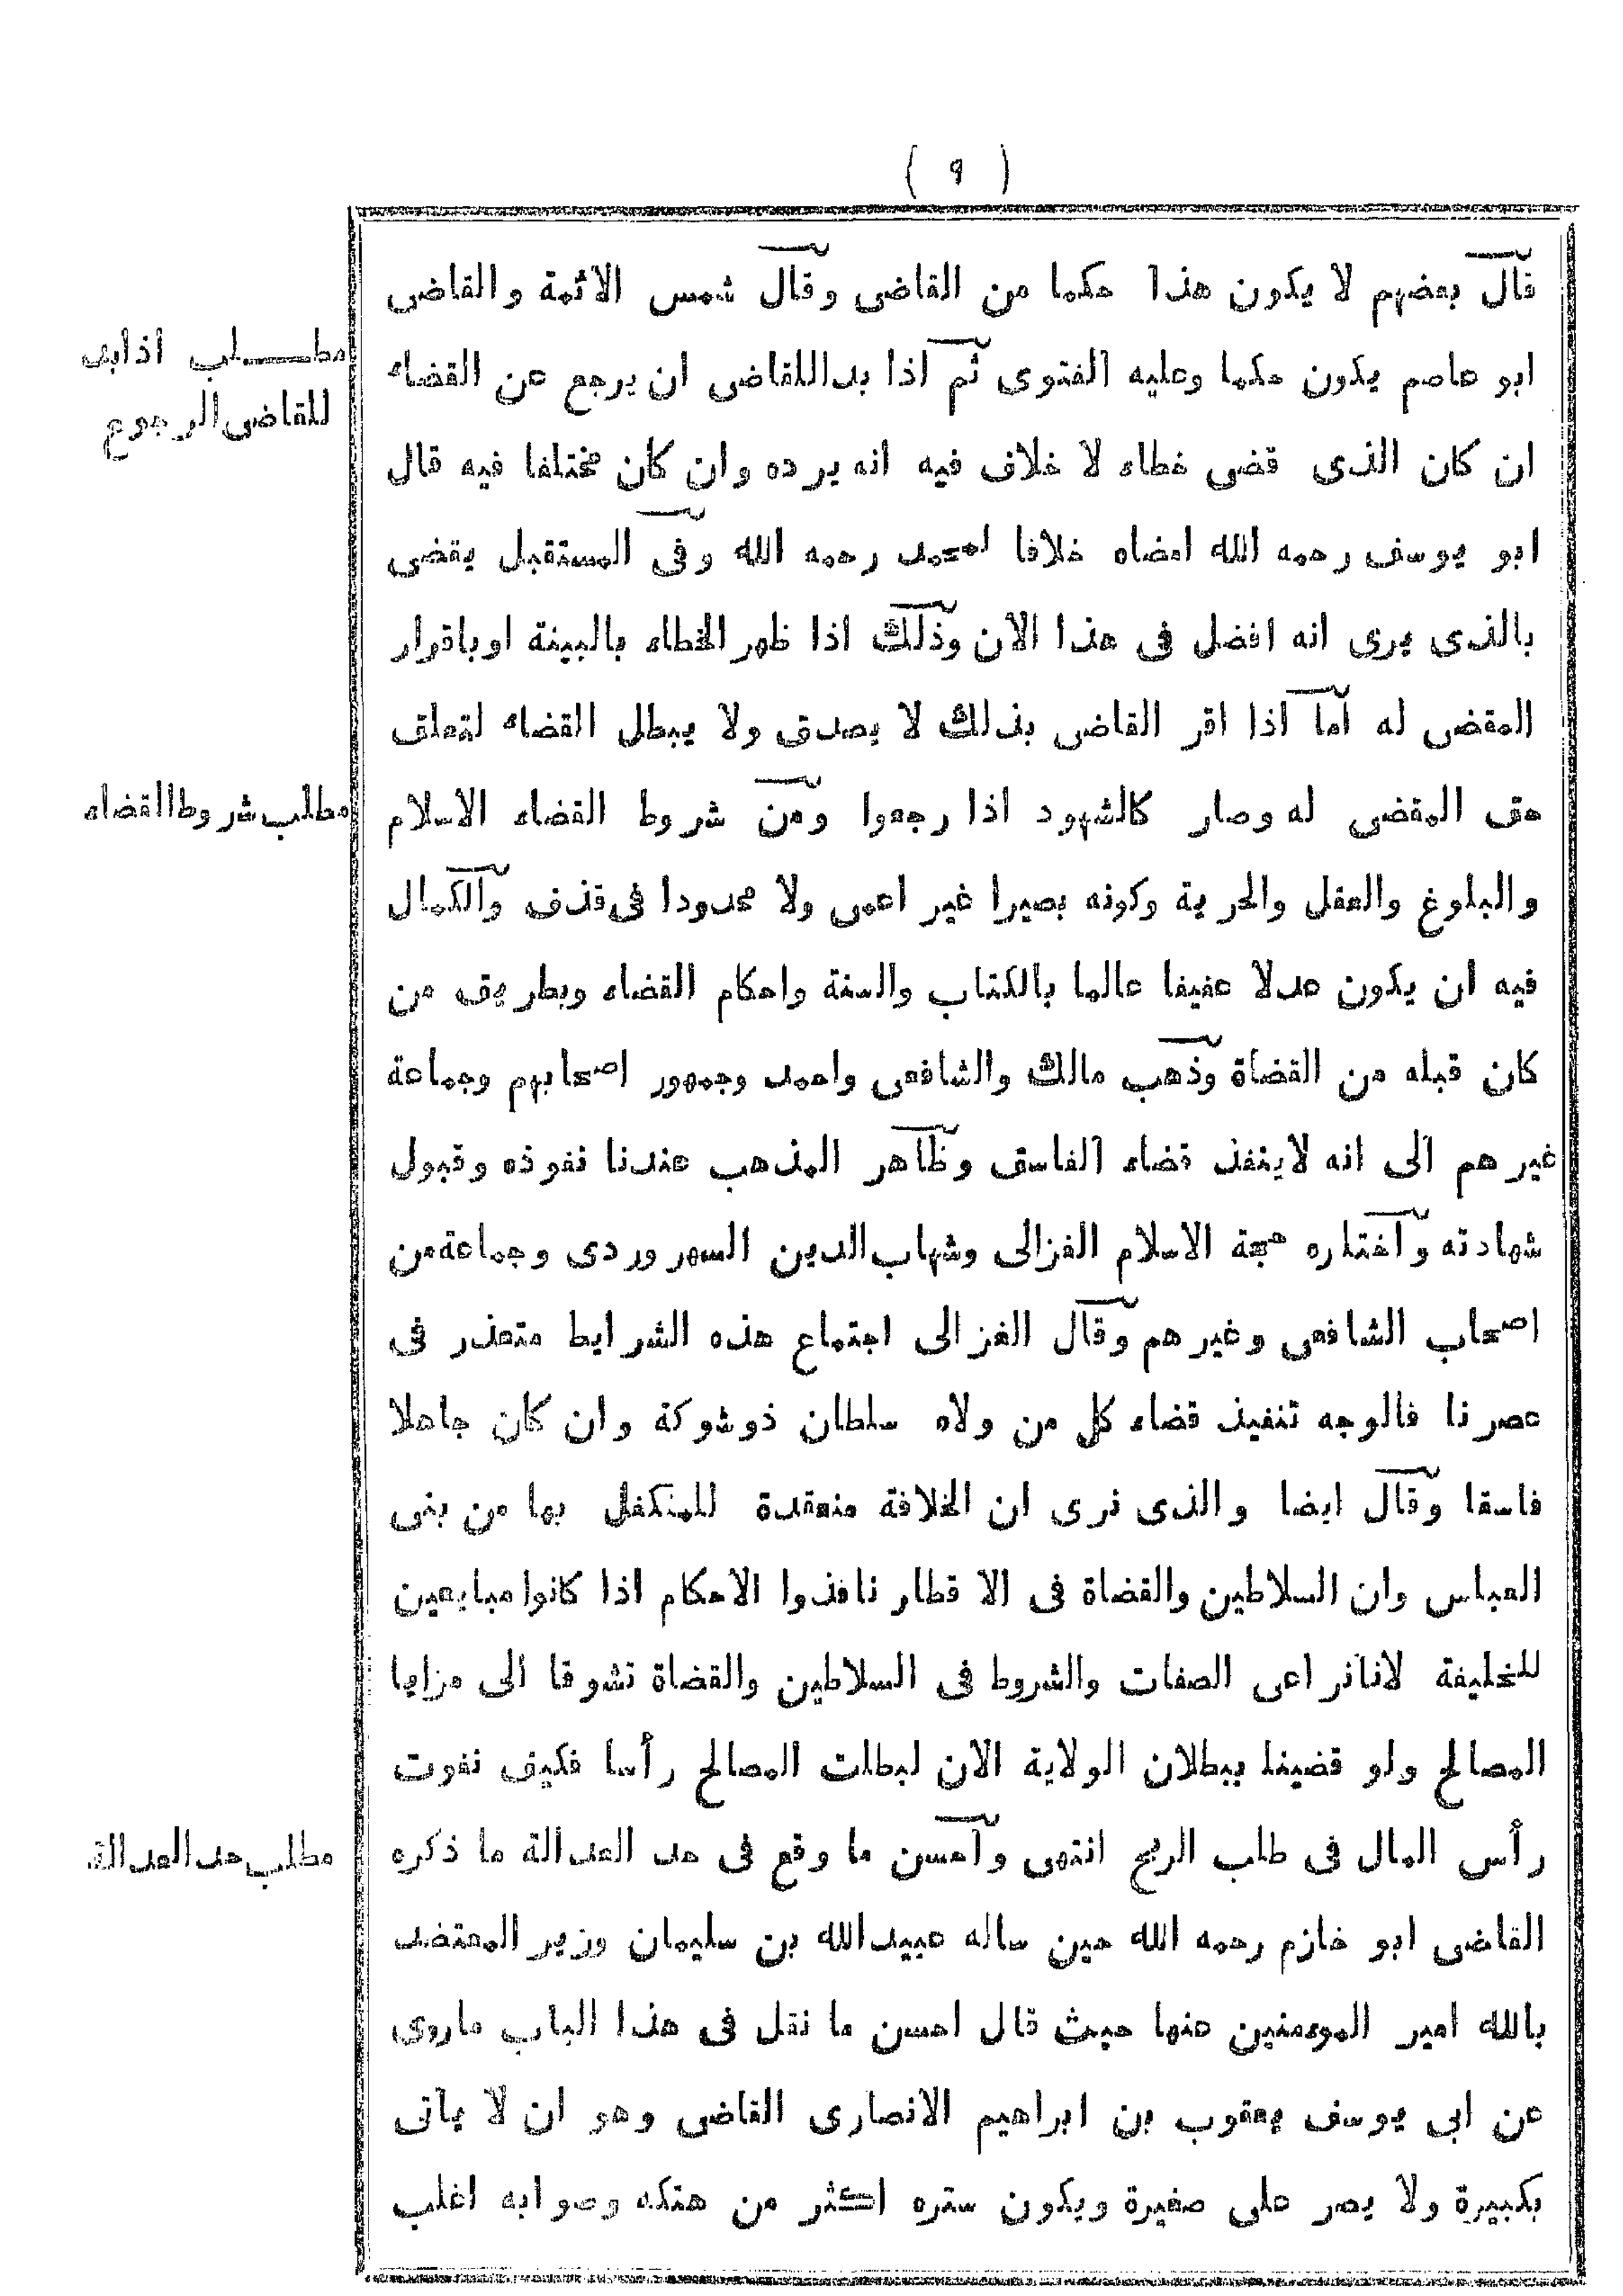 ( ٩ )
قال بعضهم لا يكون هذا حكما من القاضى وقال شمس الائمة والقاضى
ابو عاصم يكون حكما وعليه الفتوى ثم اذا بدا للقاضى ان يرجع عن القضاء
مطلب اذا بد
للقاضى الرجوع
ان كان الذى قضى خطاء لا خلاف فيه انه يرده وان كان مختلفا فيه قال
ابو يوسف رحمه الله امضاه خلافا لمحمد رحمه الله وفى المستقبل يقضى
بالذى يرى انه افضل فى هذا الان وذلك اذا ظهر الخطاء بالبينة او باقرار
المقضى له اما اذا اقر القاضى بذلك لا يصدق ولا يبطل القضاء لتعلق
حق المقضى له وصار كالشهود اذا رجعوا ومن شروط القضاء الاسلام
مطلب شروط القضاء
والبلوغ والعقل والحرية وكونه بصيرا غير اعمى ولا محدودا فى قذف والكمال
فيه ان يكون عدلا عفيفا عالما بالكتاب والسنة واحكام القضاء وبطريق من
كان قبله من القضاة وذهب مالك والشافعى واحمد وجمهور اصحابهم وجماعة
غيرهم الى انه لا ينفذ قضاء الفاسق وظاهر المذهب عندنا نفوذه وقبول
شهادته واختاره حجة الاسلام الغزالى وشهاب الدين السهروردى وجماعة من
اصحاب الشافعى وغيرهم وقال الغزالى اجتماع هذه الشرايط متعذر فى
عصرنا فالوجه تنفيذ قضاء كل من ولاه سلطان ذو شوكة وان كان جاهلا
فاسقا وقال ايضا والذى نرى ان الخلافة منعقدة للمتكفل بها من بنى
العباس وان السلاطين والقضاة فى الاقطار نافذوا الاحكام اذا كانوا مبايعين
للخليفة لانا نراعى الصفات والشروط فى السلاطين والقضاة تشوقا الى مزايا
المصالح ولو قضينا ببطلان الولاية الان لبطلت المصالح رأسا فكيف نفوت
رأس المال فى طلب الربح انتهى واحسن ما وقع فى حد العدالة ما ذكره
مطلب حد العدالة
القاضى ابو خازم رحمه الله حين ساله عبيد الله بن سليمان وزير المعتضد
بالله امير الموءمنين عنها حيث قال احسن ما نقل فى هذا الباب ما روى
عن ابى يوسف يعقوب بن ابراهيم الانصارى القاضى وهو ان لا ياتى
بكبيرة ولا يصر على صغيرة ويكون ستره اكثر من هتكه وصوابه اغلب